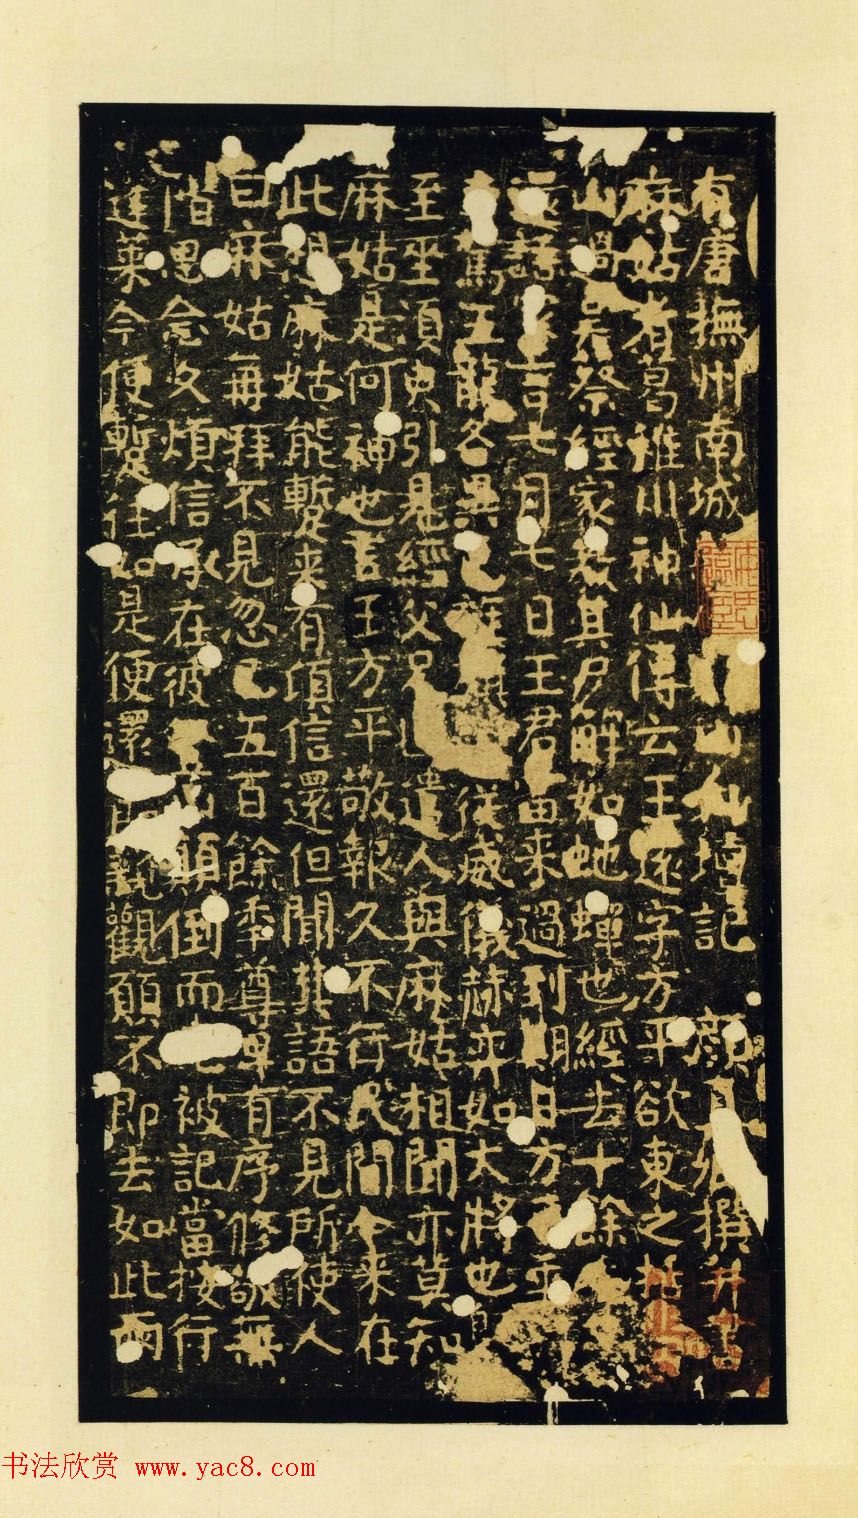 有唐撫州南城山仙壇記 顏撰并書
麻姑者葛稚川神仙傳云王遠字方平欲東之括
山過吳祭經家教其尸解如蛇蟬也經去十餘
還語家言七月七日王君當來過到期日方平
駕五龍各異色從威儀赫弈如大將也
至坐須臾引見經父兄遣人與麻姑相聞亦莫知
麻姑是何神也言王方平敬報久不行民間今來在
此想麻姑能蹔來有頃信還但聞其語不見所使人
曰麻姑再拜不見忽已五百餘年尊卑有序修敬無
階思念久煩信承在彼顛倒而先被記當按行
蓬萊今便蹔往如是便還即親觀願不即去如此兩
书法欣赏 www.yac8.com